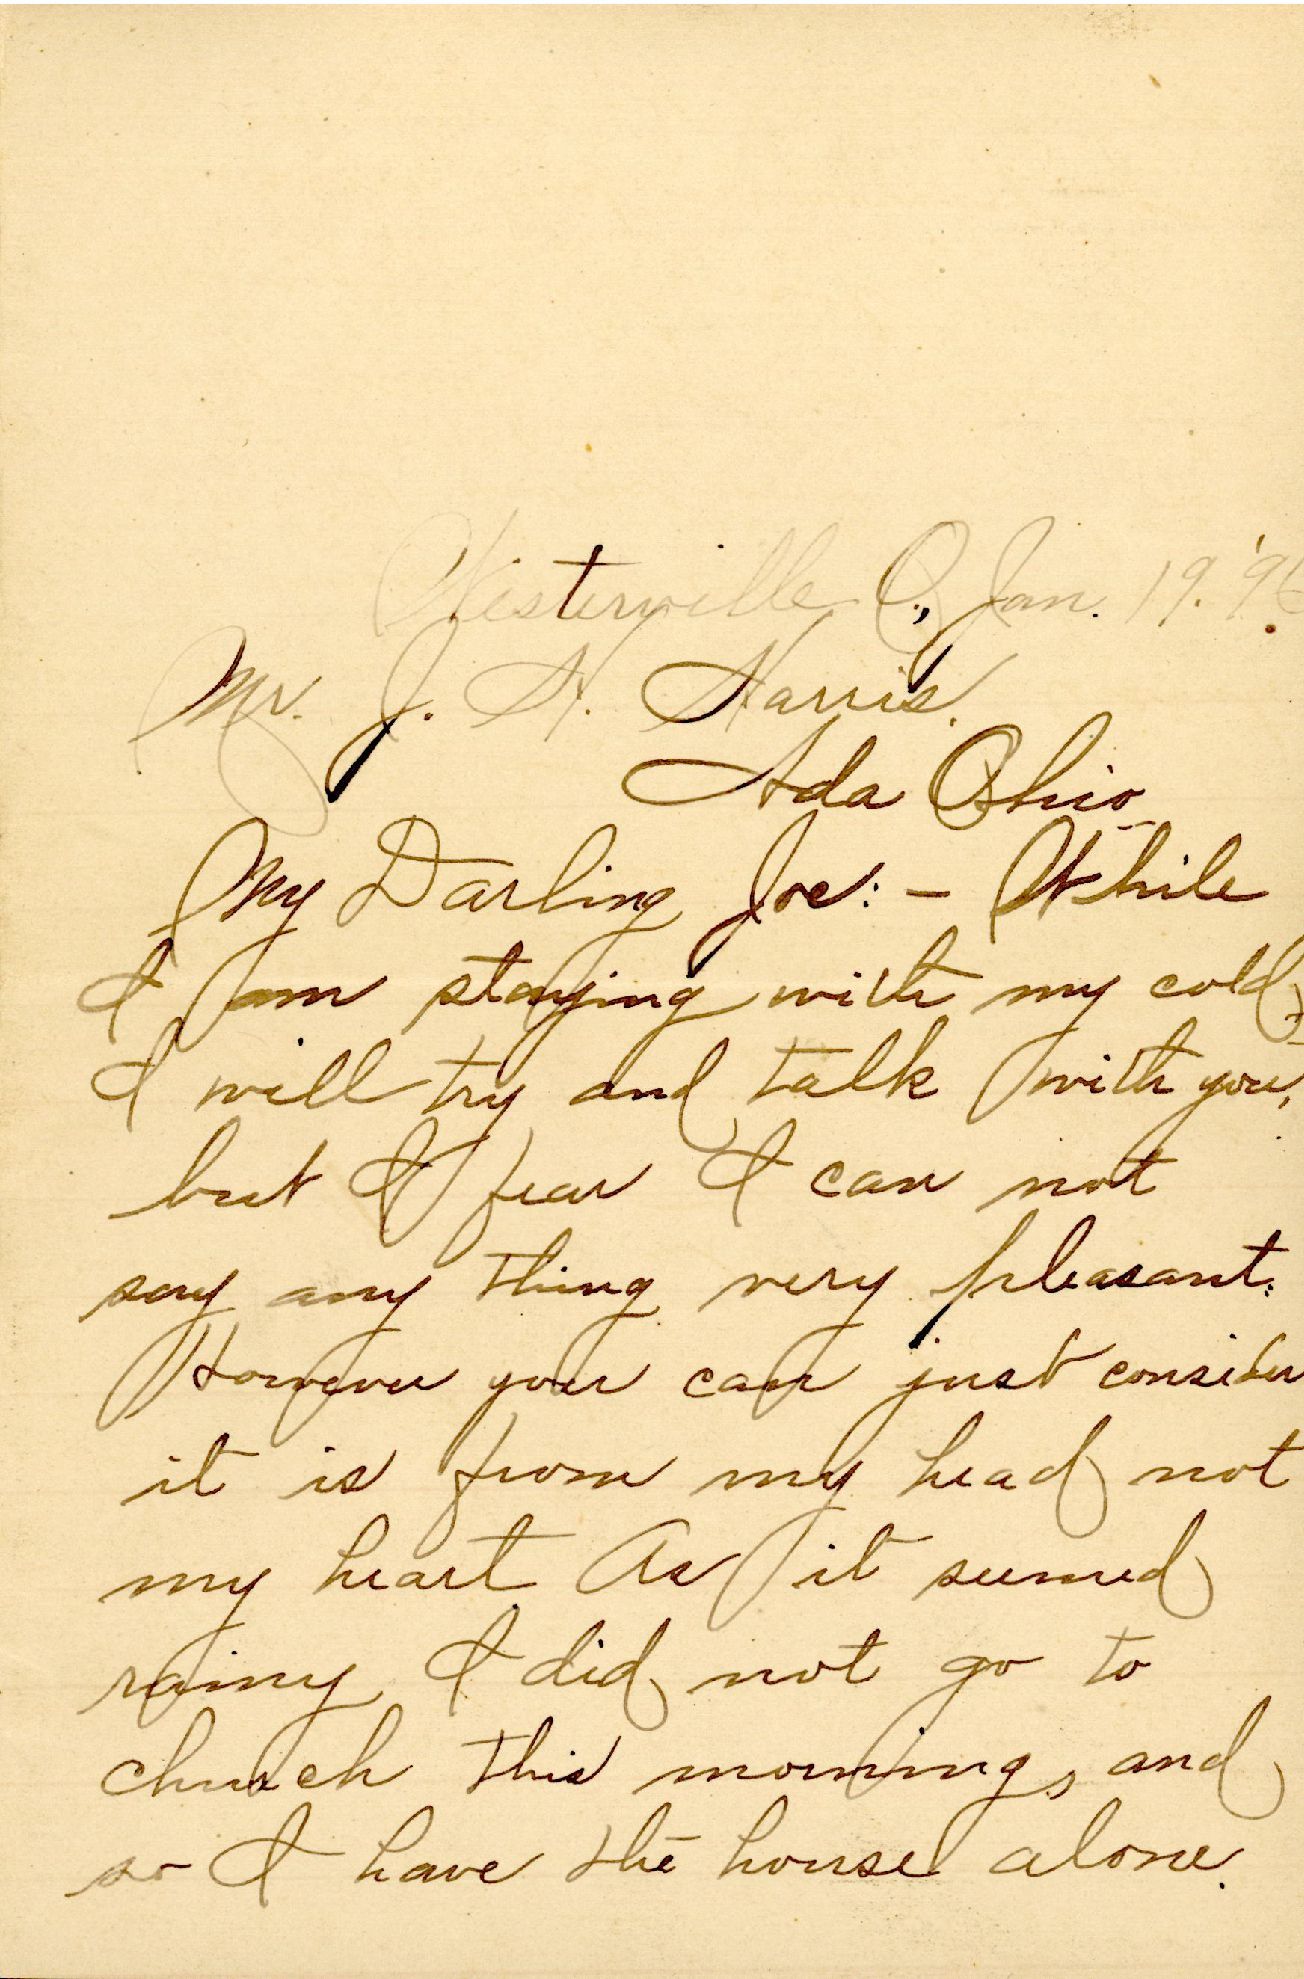 Westerville O., Jan. 19. '96
Mr. J. H. Harris.
Ada Ohio
My Darling Joe: – While
I am staying with my cold,
I will try and talk with you,
but I fear I can not
say any thing very pleasant.
However you can just consider
it is from my head not
my heart As it seemed
rainy I did not go to
church this morning, and
so I have the house alone.